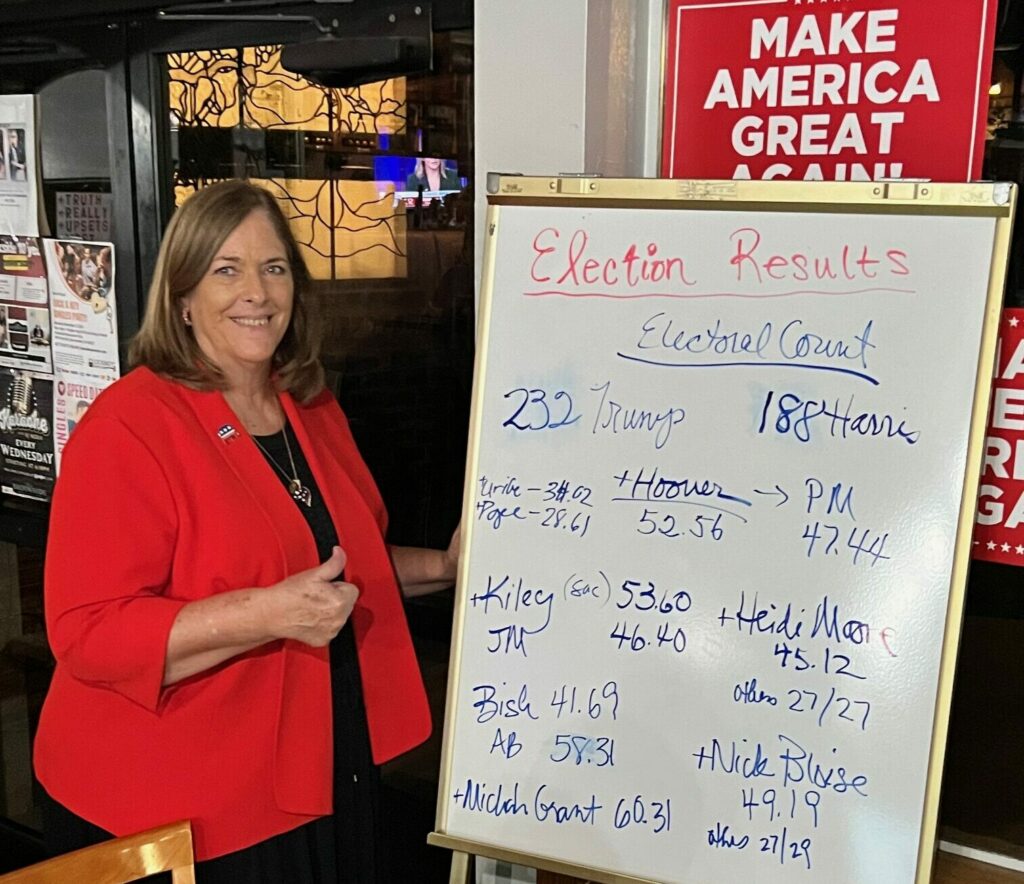 MAKE
AMERICA
GREAT
AGAIN!
Election Results
Electoral Count
232 Trump 188 Harris
+Hoover → PM
52.56 47.44
-28.61
+Kiley (Sac) 53.60
JM 46.40
+Heidi Moore
45.12
others 27/27
Bish 41.69
AB 58.31
+Nick Blaise
49.19
others 27/29
Grant 60.31
TRUTH
REALLY
UPSETS
Karaoke
EVERY
WEDNESDAY
SPEED DAT
SINGLES
GA